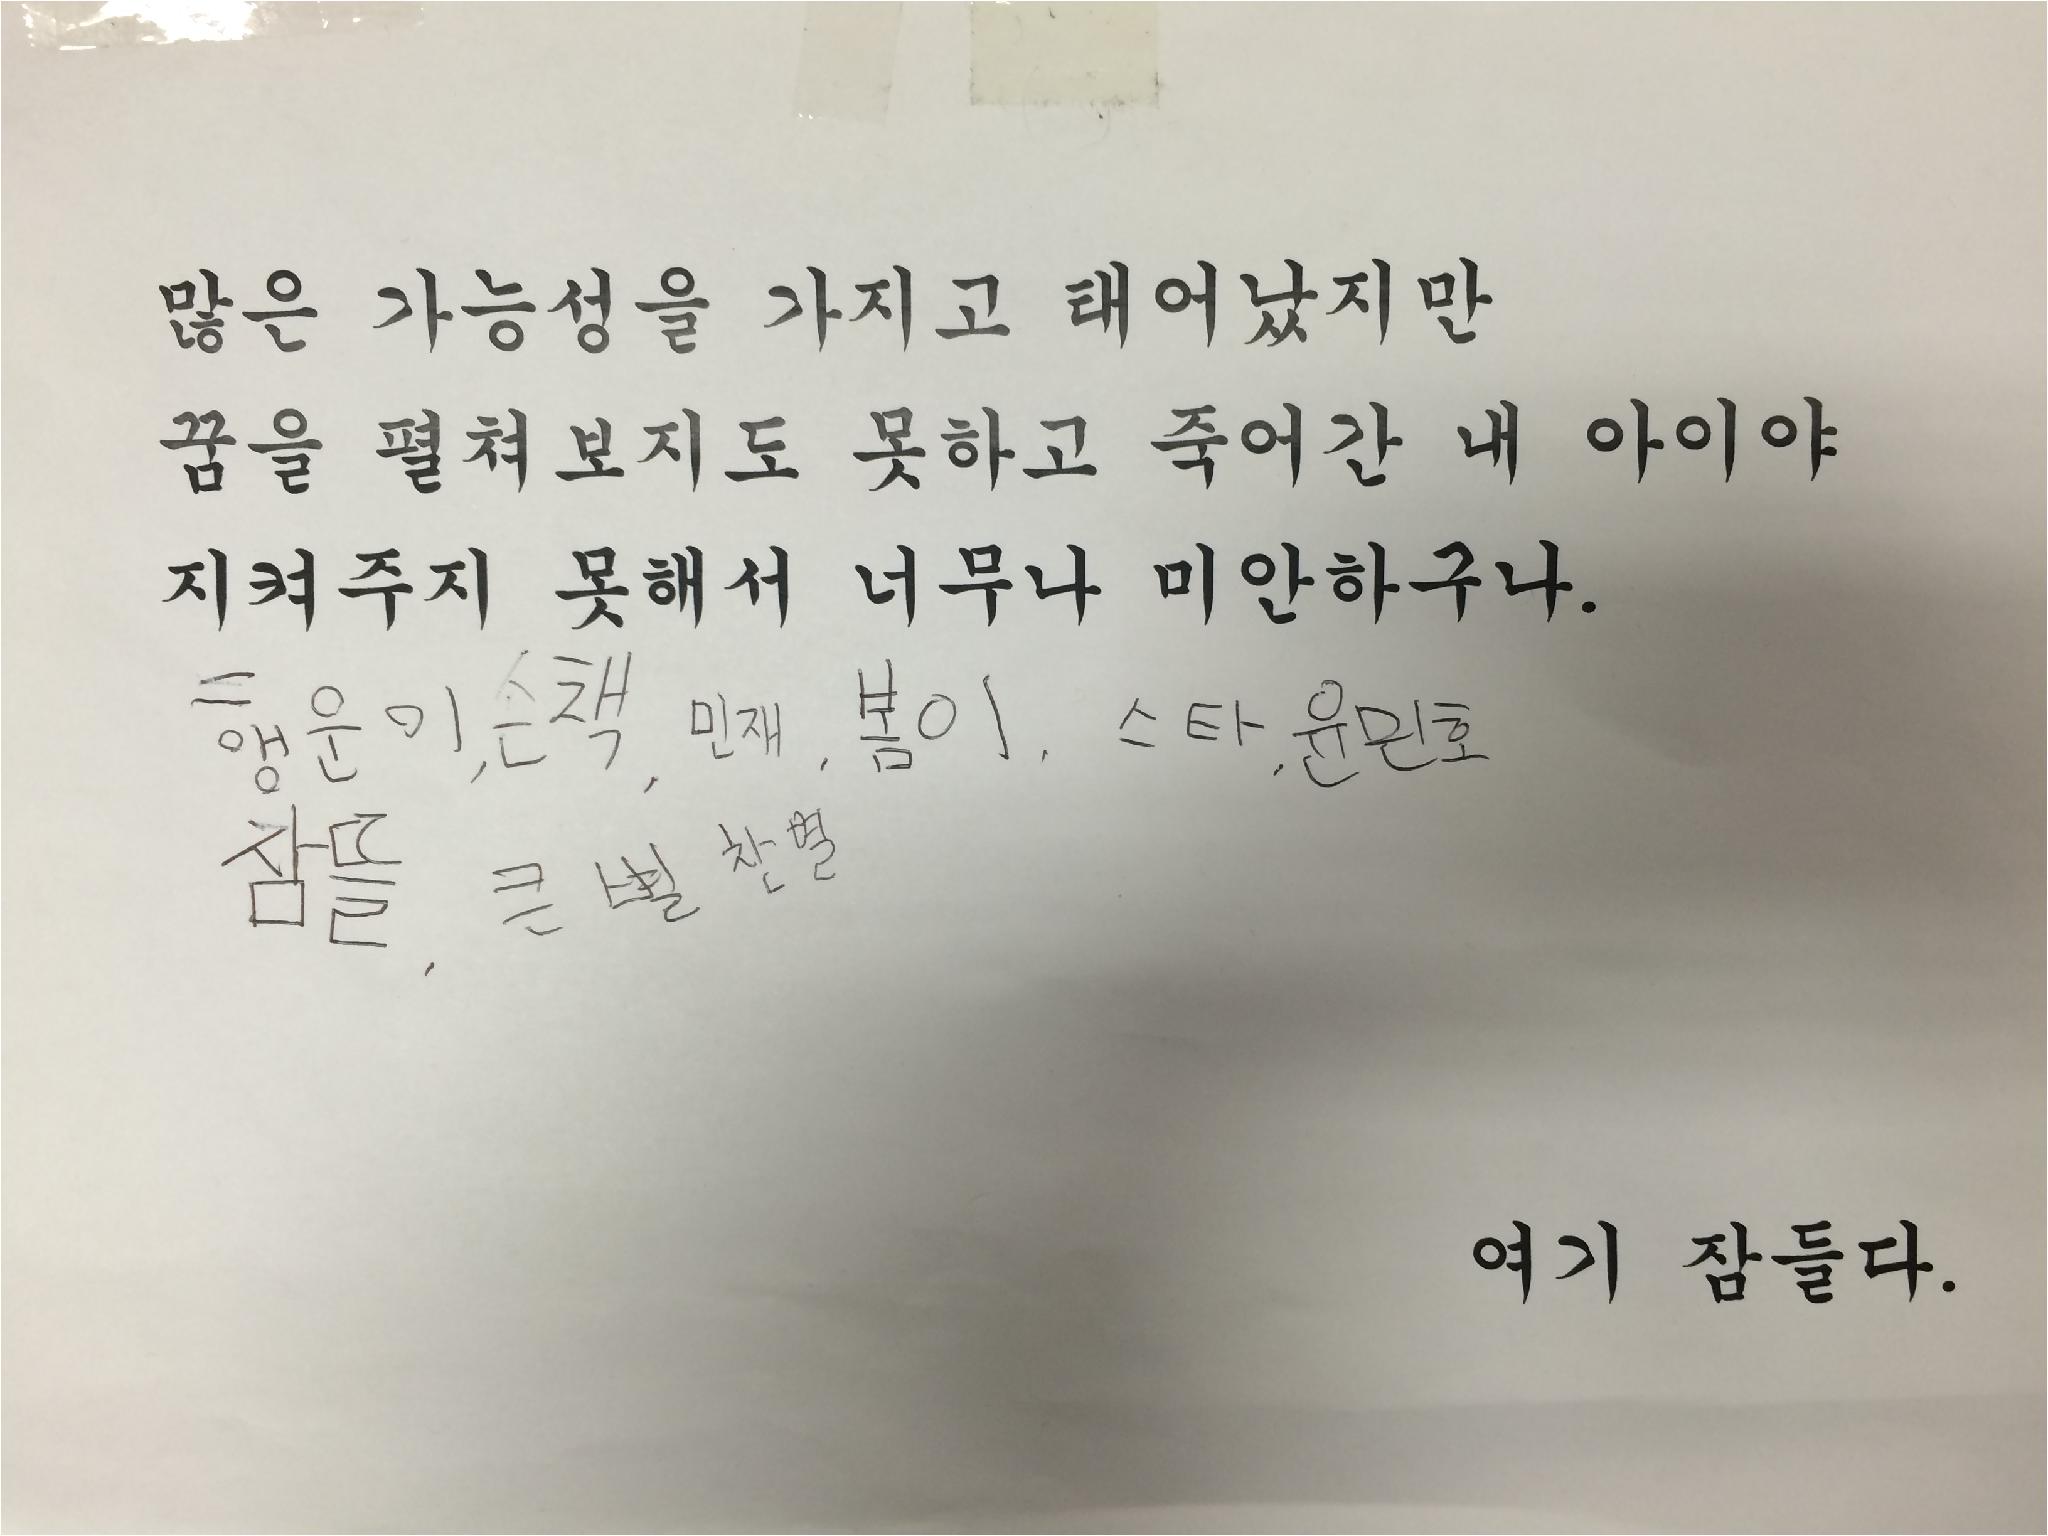 많은 가능성을 가지고 태어났지만
꿈을 펼쳐보지도 못하고 죽어간 내 아이야
지켜주지 못해서 너무나 미안하구나.
행운이, 산책, 민재, 봄이, 스타, 윤민호
잠뜰, 큰별 찬별
여기 잠들다.